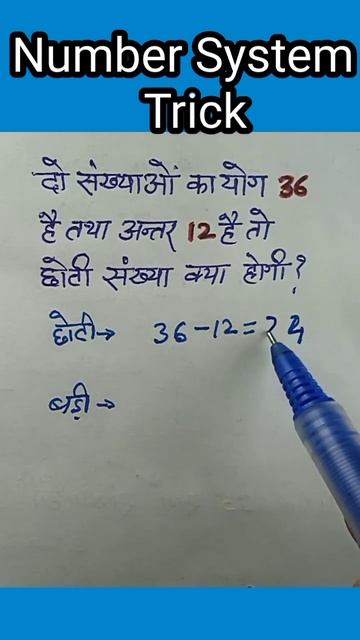 Number System
Trick
दो संख्याओं का योग 36
है तथा अन्तर 12 है तो
छोटी संख्या क्या होगी?
छोटी→ 36-12=24
बड़ी→